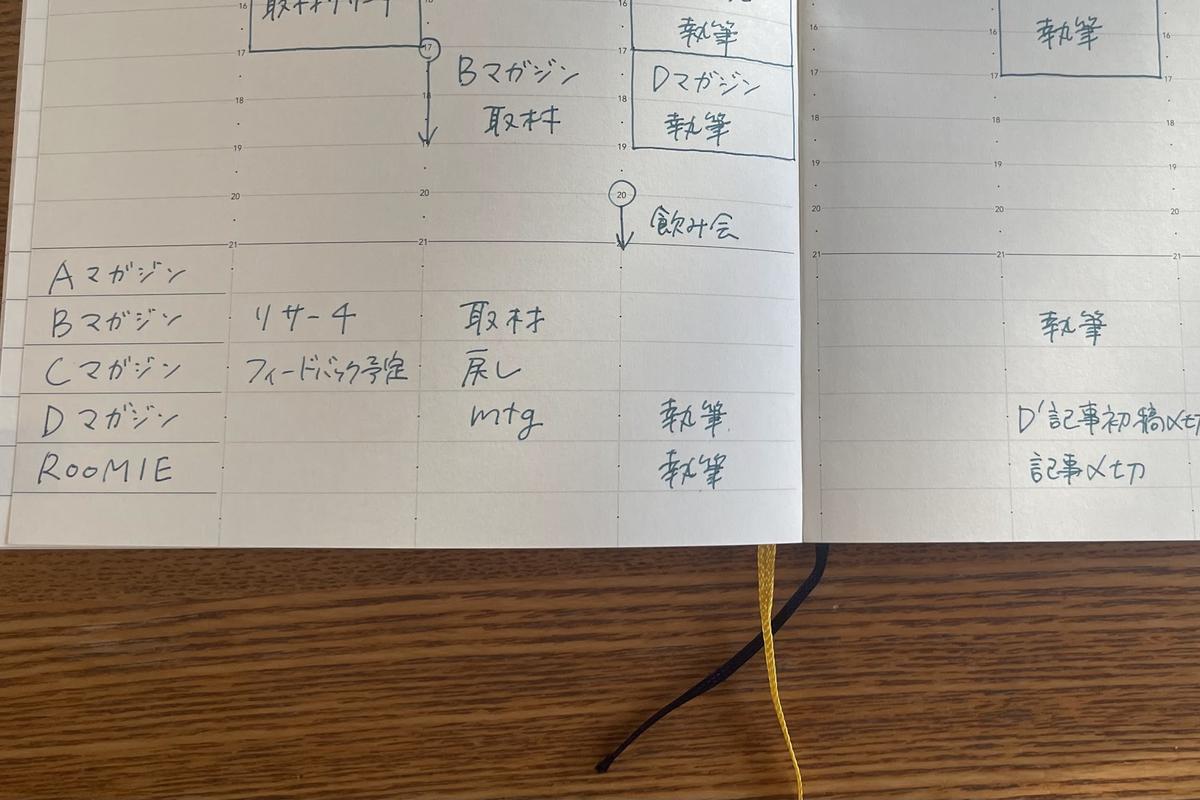 16 取材リサーチ
17
18
19
20
21
17
18
Bマガジン
取材
20
21
16
執筆
17
Dマガジン
18
執筆
19
20
飲み会
16
17
18
19
20
21
執筆
16
17
18
19
20
21
16
17
18
19
20
21
Aマガジン
Bマガジン リサーチ 取材 執筆
Cマガジン フィードバック予定 戻し
Dマガジン mtg 執筆 D'記事初稿〆切
ROOMIE 執筆 記事〆切